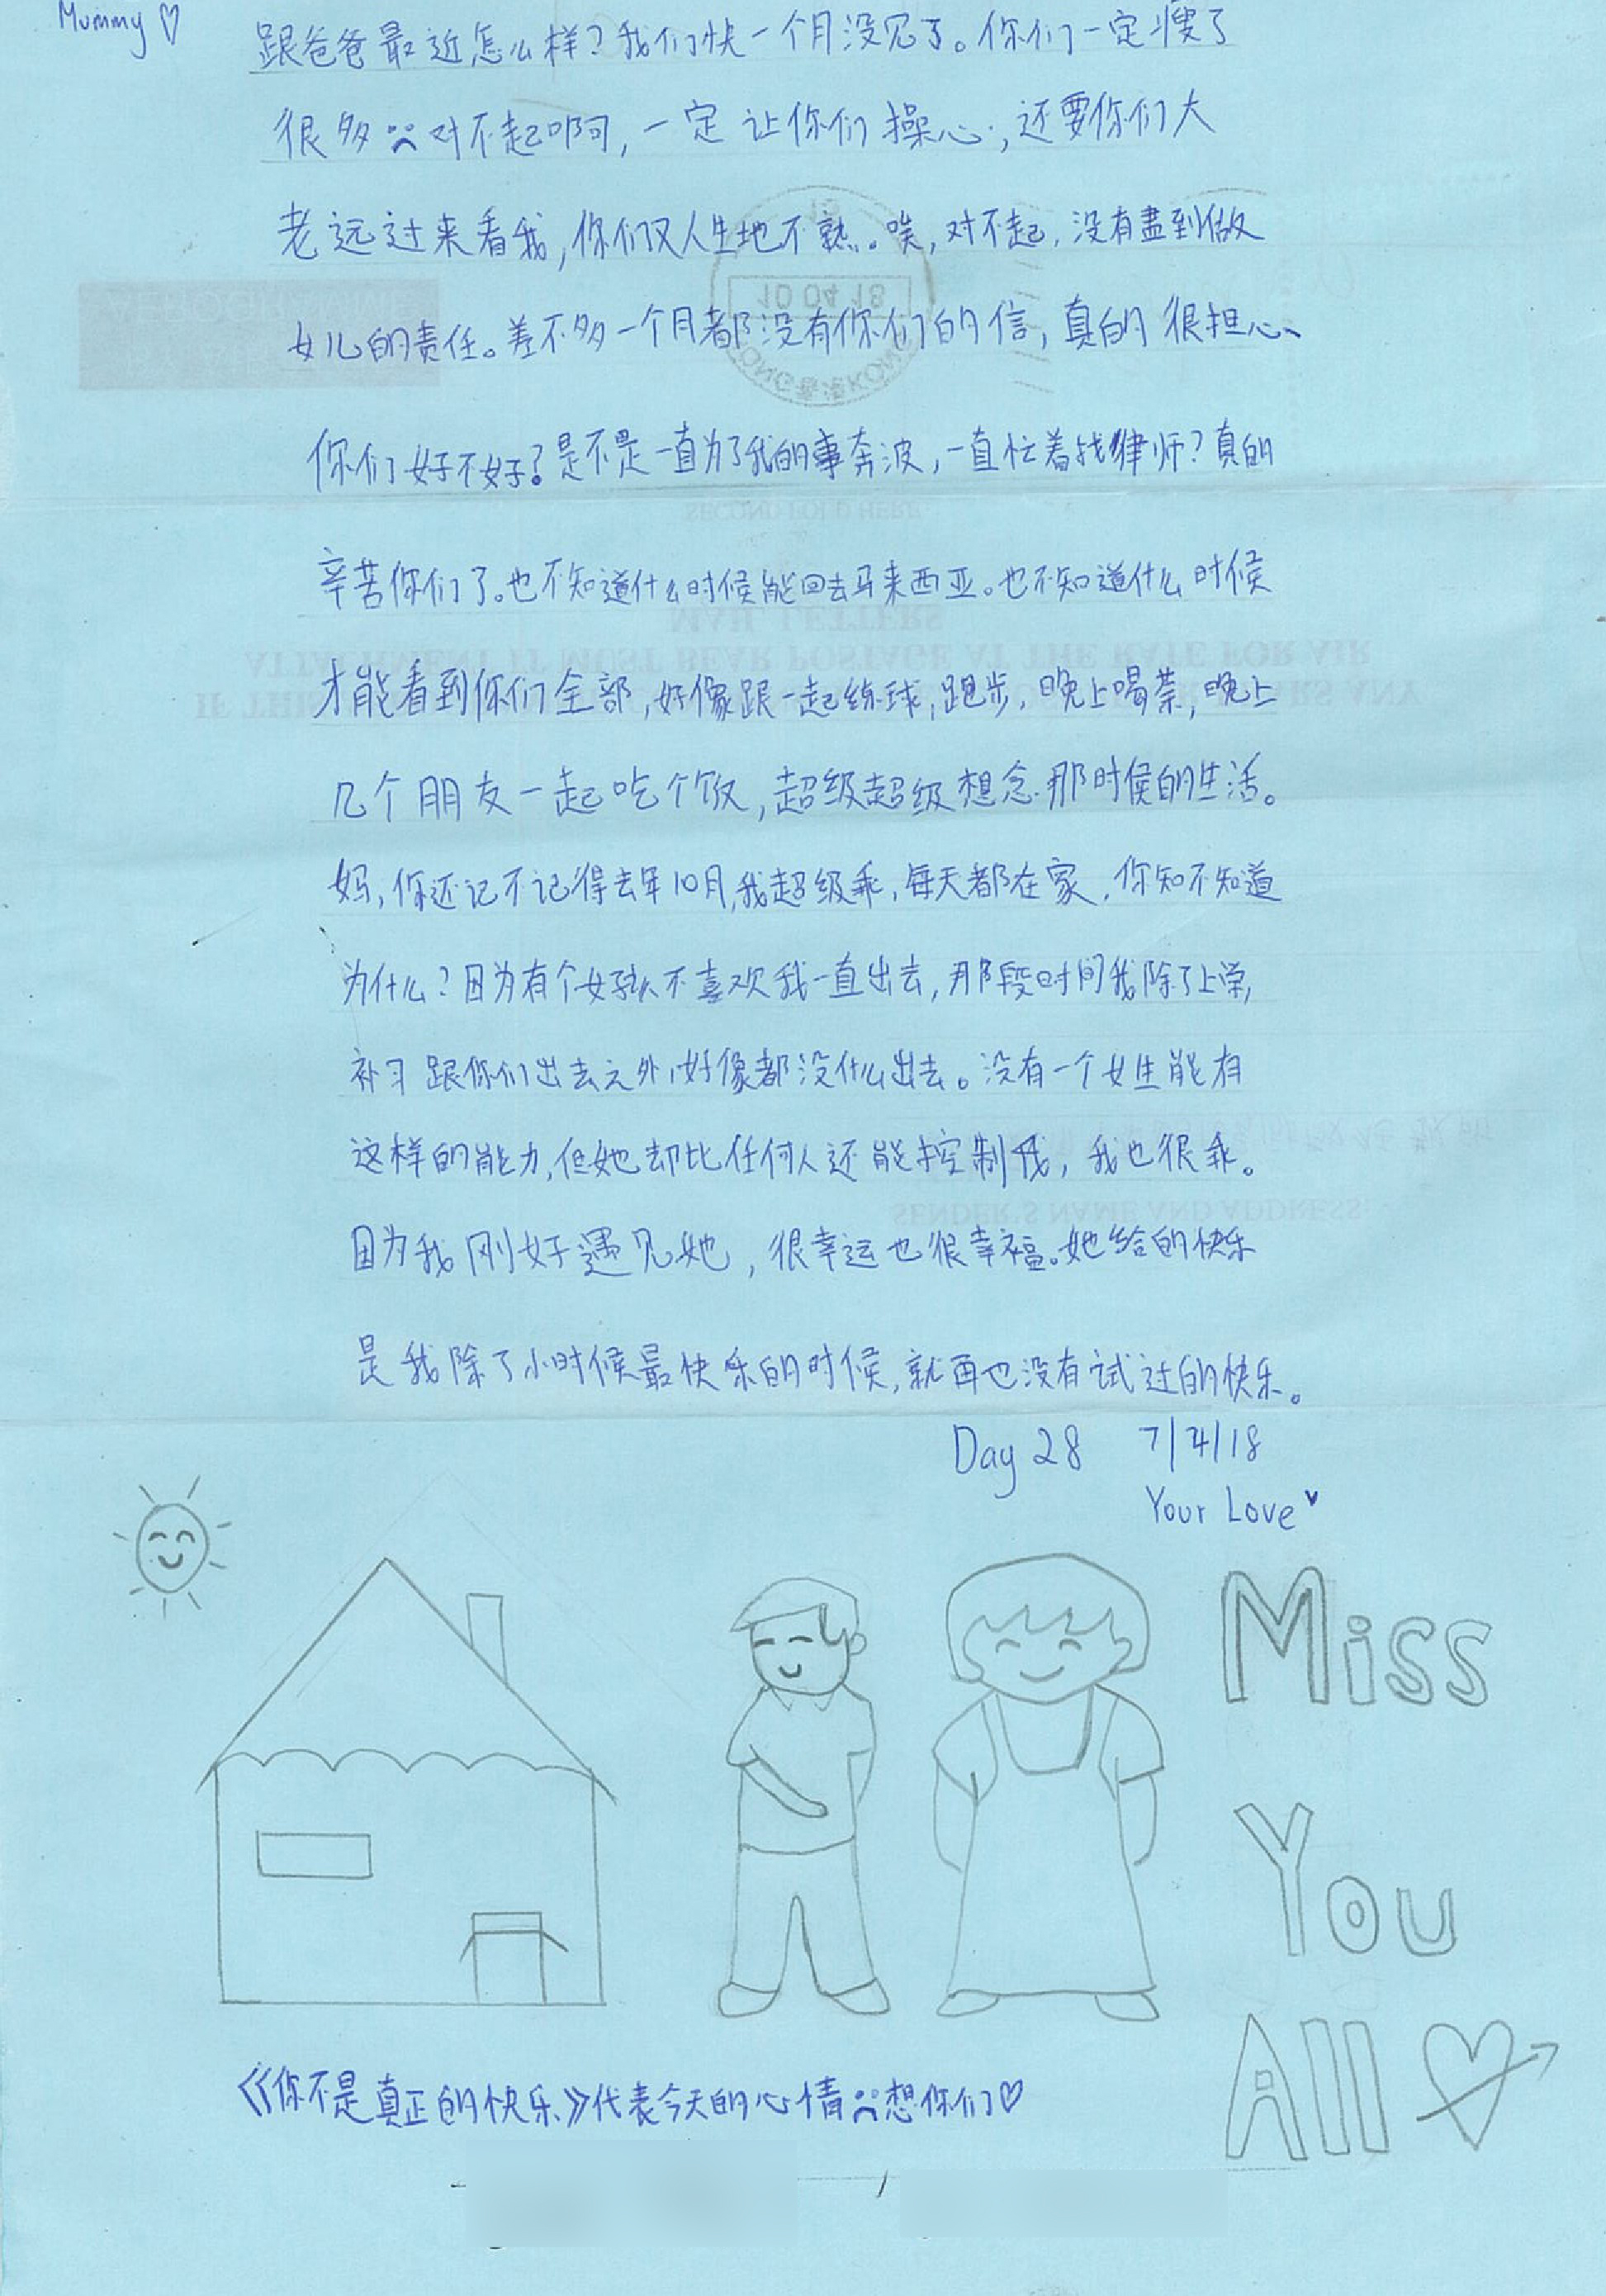 Mummy ♡
跟爸爸最近怎么样？我们快一个月没见了。你们一定瘦了
很多 对不起啊，一定让你们操心，还要你们大
老远过来看我，你们又人生地不熟。唉，对不起，没有盡到做
女儿的责任。差不多一个月都没有你们的信，真的很担心、
你们好不好？是不是一直为了我的事奔波，一直忙着找律师？真的
辛苦你们了。也不知道什么时候能回去马来西亚。也不知道什么时候
才能看到你们全部，好像跟一起练球，跑步，晚上喝茶，晚上
几个朋友一起吃个饭，超级超级想念那时候的生活。
妈，你还记不记得去年10月，我超级乖，每天都在家，你知不知道
为什么？因为有个女孩不喜欢我一直出去，那段时间我除了上学，
补习跟你们出去之外，好像都没什么出去。没有一个女生能有
这样的能力，但她却比任何人还能控制我，我也很乖。
因为我刚好遇见她，很幸运也很幸福。她给的快乐
是我除了小时候最快乐的时候，就再也没有试过的快乐。
Day 28 7/4/18
Your Love ♥
Miss
You
All ♡
《你不是真正的快乐》代表今天的心情 想你们♡
10 04 18
SECOND FOLD HERE
IF THIS ANY
ATTACHMENT IT MUST BEAR POSTAGE AT THE RATE FOR AIR
MAIL LETTERS
SENDER'S NAME AND ADDRESS: